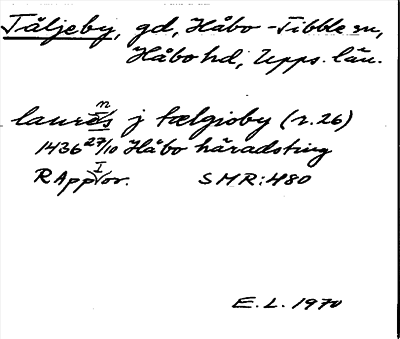 Täljeby, gd, Håbo-Tibble sn,
Håbo hd, Upps. län.
laurens j tælgioby (r. 26)
1436 27/10 Håbo häradsting
RAppror. I SMR: 480
E.L. 1970